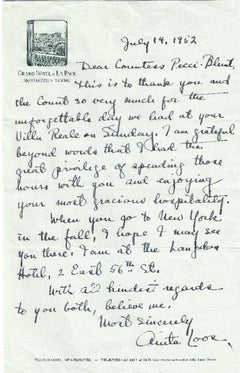 GRAND HOTEL & LA PACE
MONTECATINI TERME
July 14, 1952
Dear Countess Pecci-Blunt,
This is to thank you and
the Count so very much for the
unforgettable day we had at your
Villa Reale on Sunday. I am grateful
beyond words that I had the
great privilege of spending those
hours with you and enjoying
your most gracious hospitality.
When you go to New York
in the fall, I hope I may see
you there. I am at the Langdon
Hotel, 2 East 56th St.
With all kindest regards
to you both, believe me,
Most Sincerely
Anita Loos.